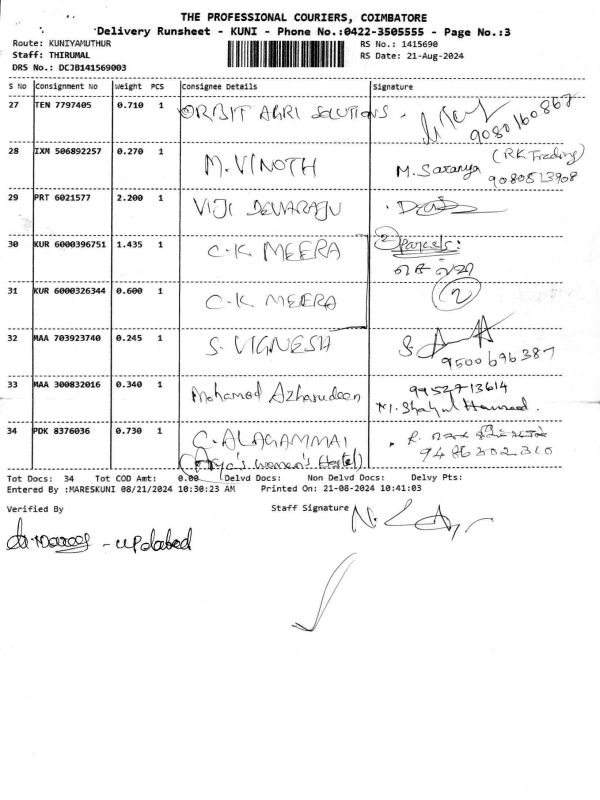 THE PROFESSIONAL COURIERS, COIMBATORE
Delivery Runsheet - KUNI - Phone No.:0422-3505555 - Page No.:3
Route: KUNIYAMUTHUR RS No.: 1415690
Staff: THIRUMAL RS Date: 21-Aug-2024
DRS No.: DCJB141569003
S No Consignment No Weight PCS Consignee Details Signature
27 TEN 7797405 0.710 1 ORBIT AGRI SOLUTIONS. 9080160867
28 IXM 506892257 0.270 1 M. VINOTH M. Saranya (RK Trading)
9080513908
29 PRT 6021577 2.200 1 VIJI DEVARAJU
30 KUR 6000396751 1.435 1 C.K. MEERA 2 Parcels:
31 KUR 6000326344 0.600 1 C.K. MEERA 2
32 MAA 703923740 0.245 1 S. VIGNESH 9500696387
33 MAA 300832016 0.340 1 Mohamed Azharudeen 9952713614
M. Shahul Hameed.
34 PDK 8376036 0.730 1 C. ALAGAMMAI
(Arya's women's Hostel) 9486302310
Tot Docs: 34 Tot COD Amt: 0.00 Delvd Docs: Non Delvd Docs: Delvy Pts:
Entered By :MARESKUNI 08/21/2024 10:30:23 AM Printed On: 21-08-2024 10:41:03
Verified By Staff Signature
- updated